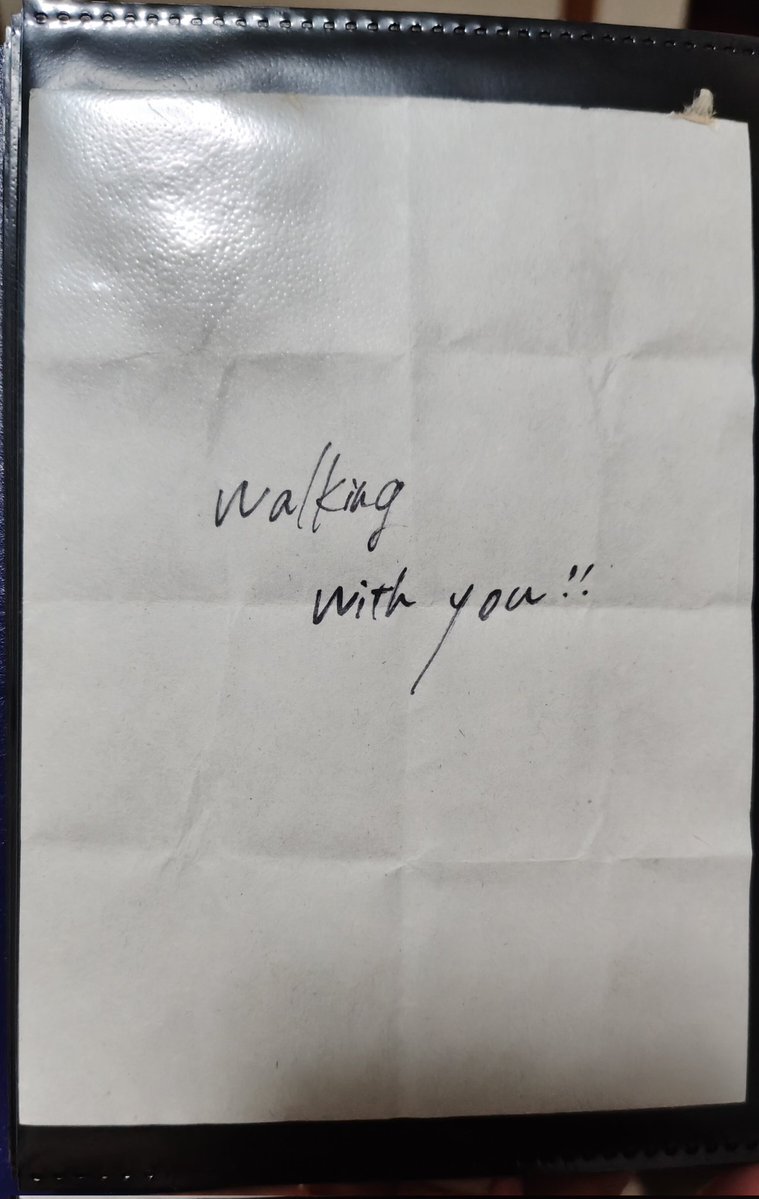 walking
with you!!